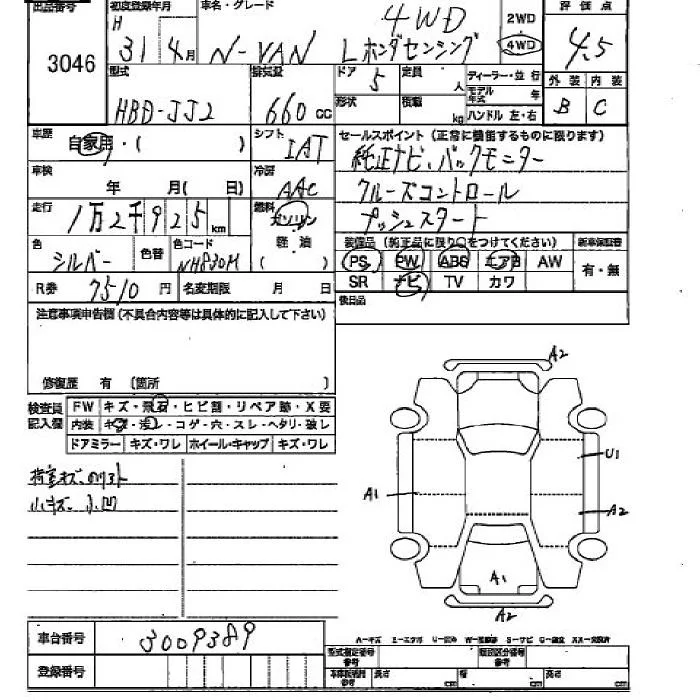 出品番号 初度登録年月 車名・グレード 2WD 評価点
3046 H 31 4月 N-VAN 4WD Lホンダセンシング 4WD 4.5
型式 排気量 ドア 定員 ディーラー・並行 外装 内装
HBD-JJ2 660 cc 5 人 モデル年式 年 B C
形状 積載 kg ハンドル 左・右
車歴 自家用・( ) シフト IAT セールスポイント (正常に機能するものに限ります)
純正ナビ、バックモニター
車検 年 月( 日) 冷房 AAC クルーズコントロール
走行 1万2千925 km 燃料 ガソリン 軽油 ( ) プッシュスタート
色 シルバー 色替 色コード NH830M 装備品 (純正品に限り○をつけてください) 新車保証書
PS PW ABS エアB AW 有・無
R券 7510 円 名変期限 月 日 SR ナビ TV カワ
注意事項申告欄(不具合内容等は具体的に記入して下さい) 後日品
修復歴 有 〔箇所
検査員記入欄 FW キズ・飛石・ヒビ割・リペア跡・X要
内装 キズ・汚レ・コゲ・穴・スレ・ヘタリ・破レ
ドアミラー キズ・ワレ ホイール・キャップ キズ・ワレ
荷室キズ
小キズ 小凹
A2
U1
A1
A2
A1
A2
車台番号 3009389
登録番号
A-キズ
型式指定番号 参考 類別区分番号 参考
長さ cm 幅 cm 高さ cm